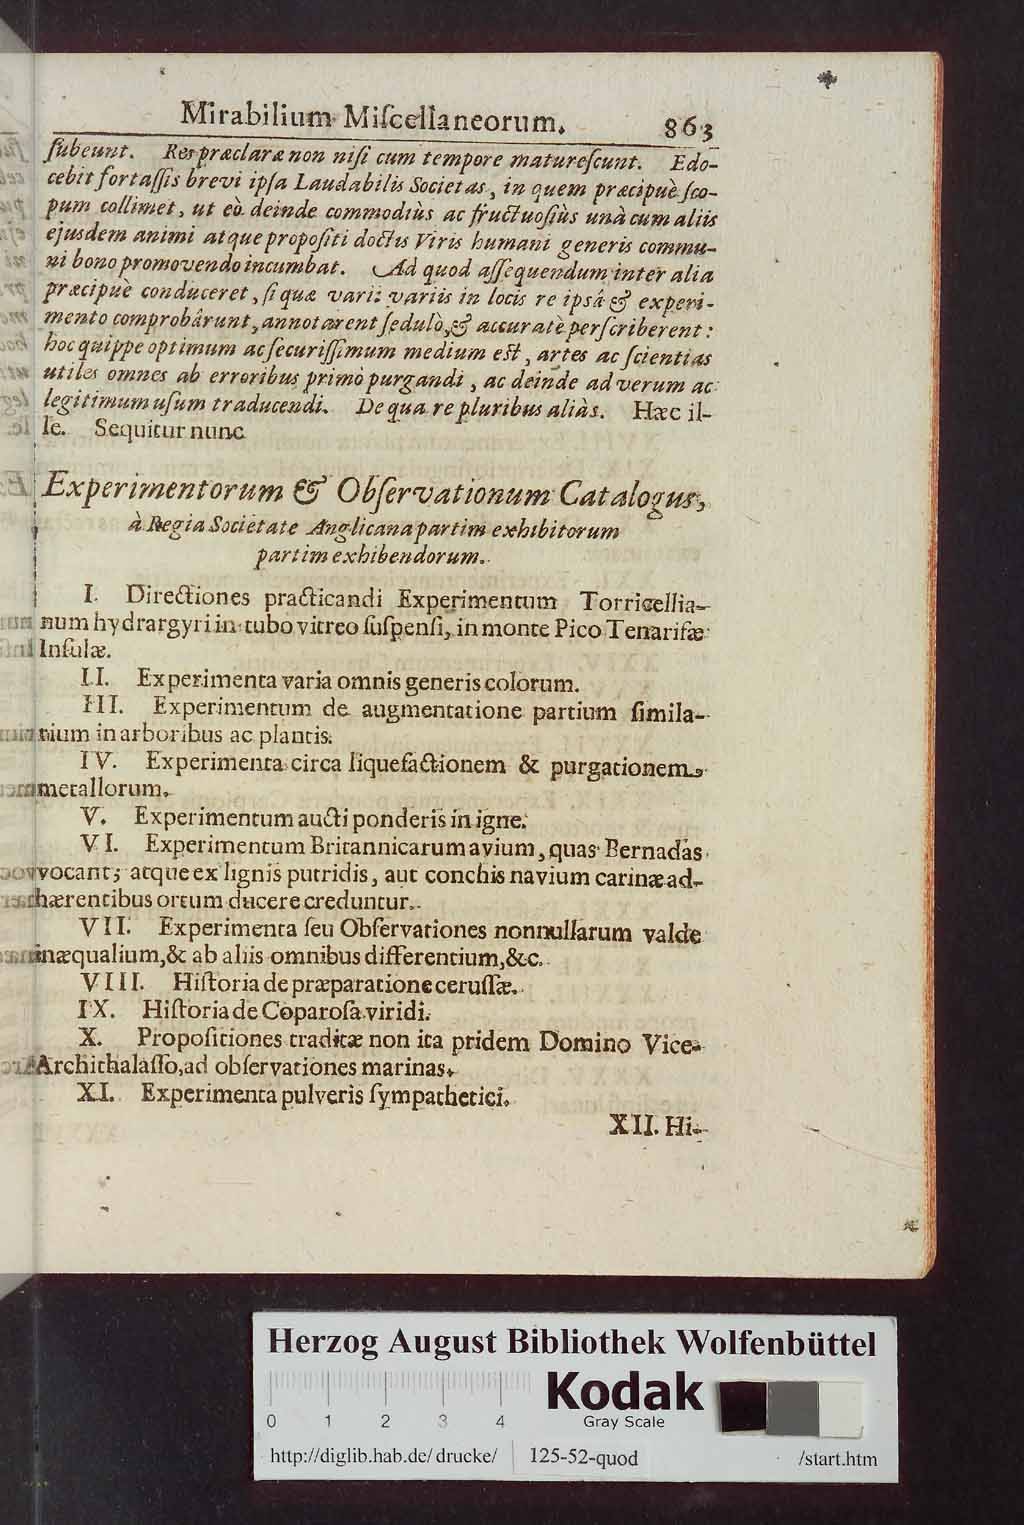 Mirabilium Miſcellaneorum. 863
ſubeunt. Res præclaræ non niſi cum tempore matureſcunt. Edo-
cebit fortaſſis brevi ipſa Laudabilis Societas, in quem præcipuè ſco-
pum collimet, ut eò deinde commodiùs ac fructuoſiùs unà cum aliis
ejusdem animi atque propoſiti doctis Viris humani generis commu-
ni bono promovendo incumbat. Ad quod aſſequendum inter alia
præcipuè conduceret, ſi quæ varii variis in locis re ipsâ & experi-
mento comprobârunt, annotarent ſedulò, & accuratè perſcriberent:
hoc quippe optimum ac ſecuriſſimum medium eſt, artes ac ſcientias
utiles omnes ab erroribus primò purgandi, ac deinde ad verum ac
legitimum uſum traducendi. De qua re pluribus aliàs. Hæc il-
le. Sequitur nunc
Experimentorum & Obſervationum Catalogus,
à Regia Societate Anglicana partim exhibitorum
partim exhibendorum.
I. Directiones practicandi Experimentum Torricellia-
num hydrargyri in tubo vitreo ſuſpenſi, in monte Pico Tenarifæ
Inſulæ.
II. Experimenta varia omnis generis colorum.
III. Experimentum de augmentatione partium ſimila-
rium in arboribus ac plantis.
IV. Experimenta circa liquefactionem & purgationem
metallorum.
V. Experimentum aucti ponderis in igne.
VI. Experimentum Britannicarum avium, quas Bernadas
vocant; atque ex lignis putridis, aut conchis navium carinæ ad-
hærentibus ortum ducere creduntur.
VII. Experimenta ſeu Obſervationes nonnullarum valde
inæqualium, & ab aliis omnibus differentium, &c.
VIII. Hiſtoria de præparatione ceruſſæ.
IX. Hiſtoria de Coparoſa viridi.
X. Propoſitiones traditæ non ita pridem Domino Vice-
Archithalaſſo, ad obſervationes marinas.
XI. Experimenta pulveris ſympathetici.
XII. Hi-
Herzog August Bibliothek Wolfenbüttel
Kodak
0 1 2 3 4 Gray Scale
http://diglib.hab.de/drucke/ 125-52-quod /start.htm